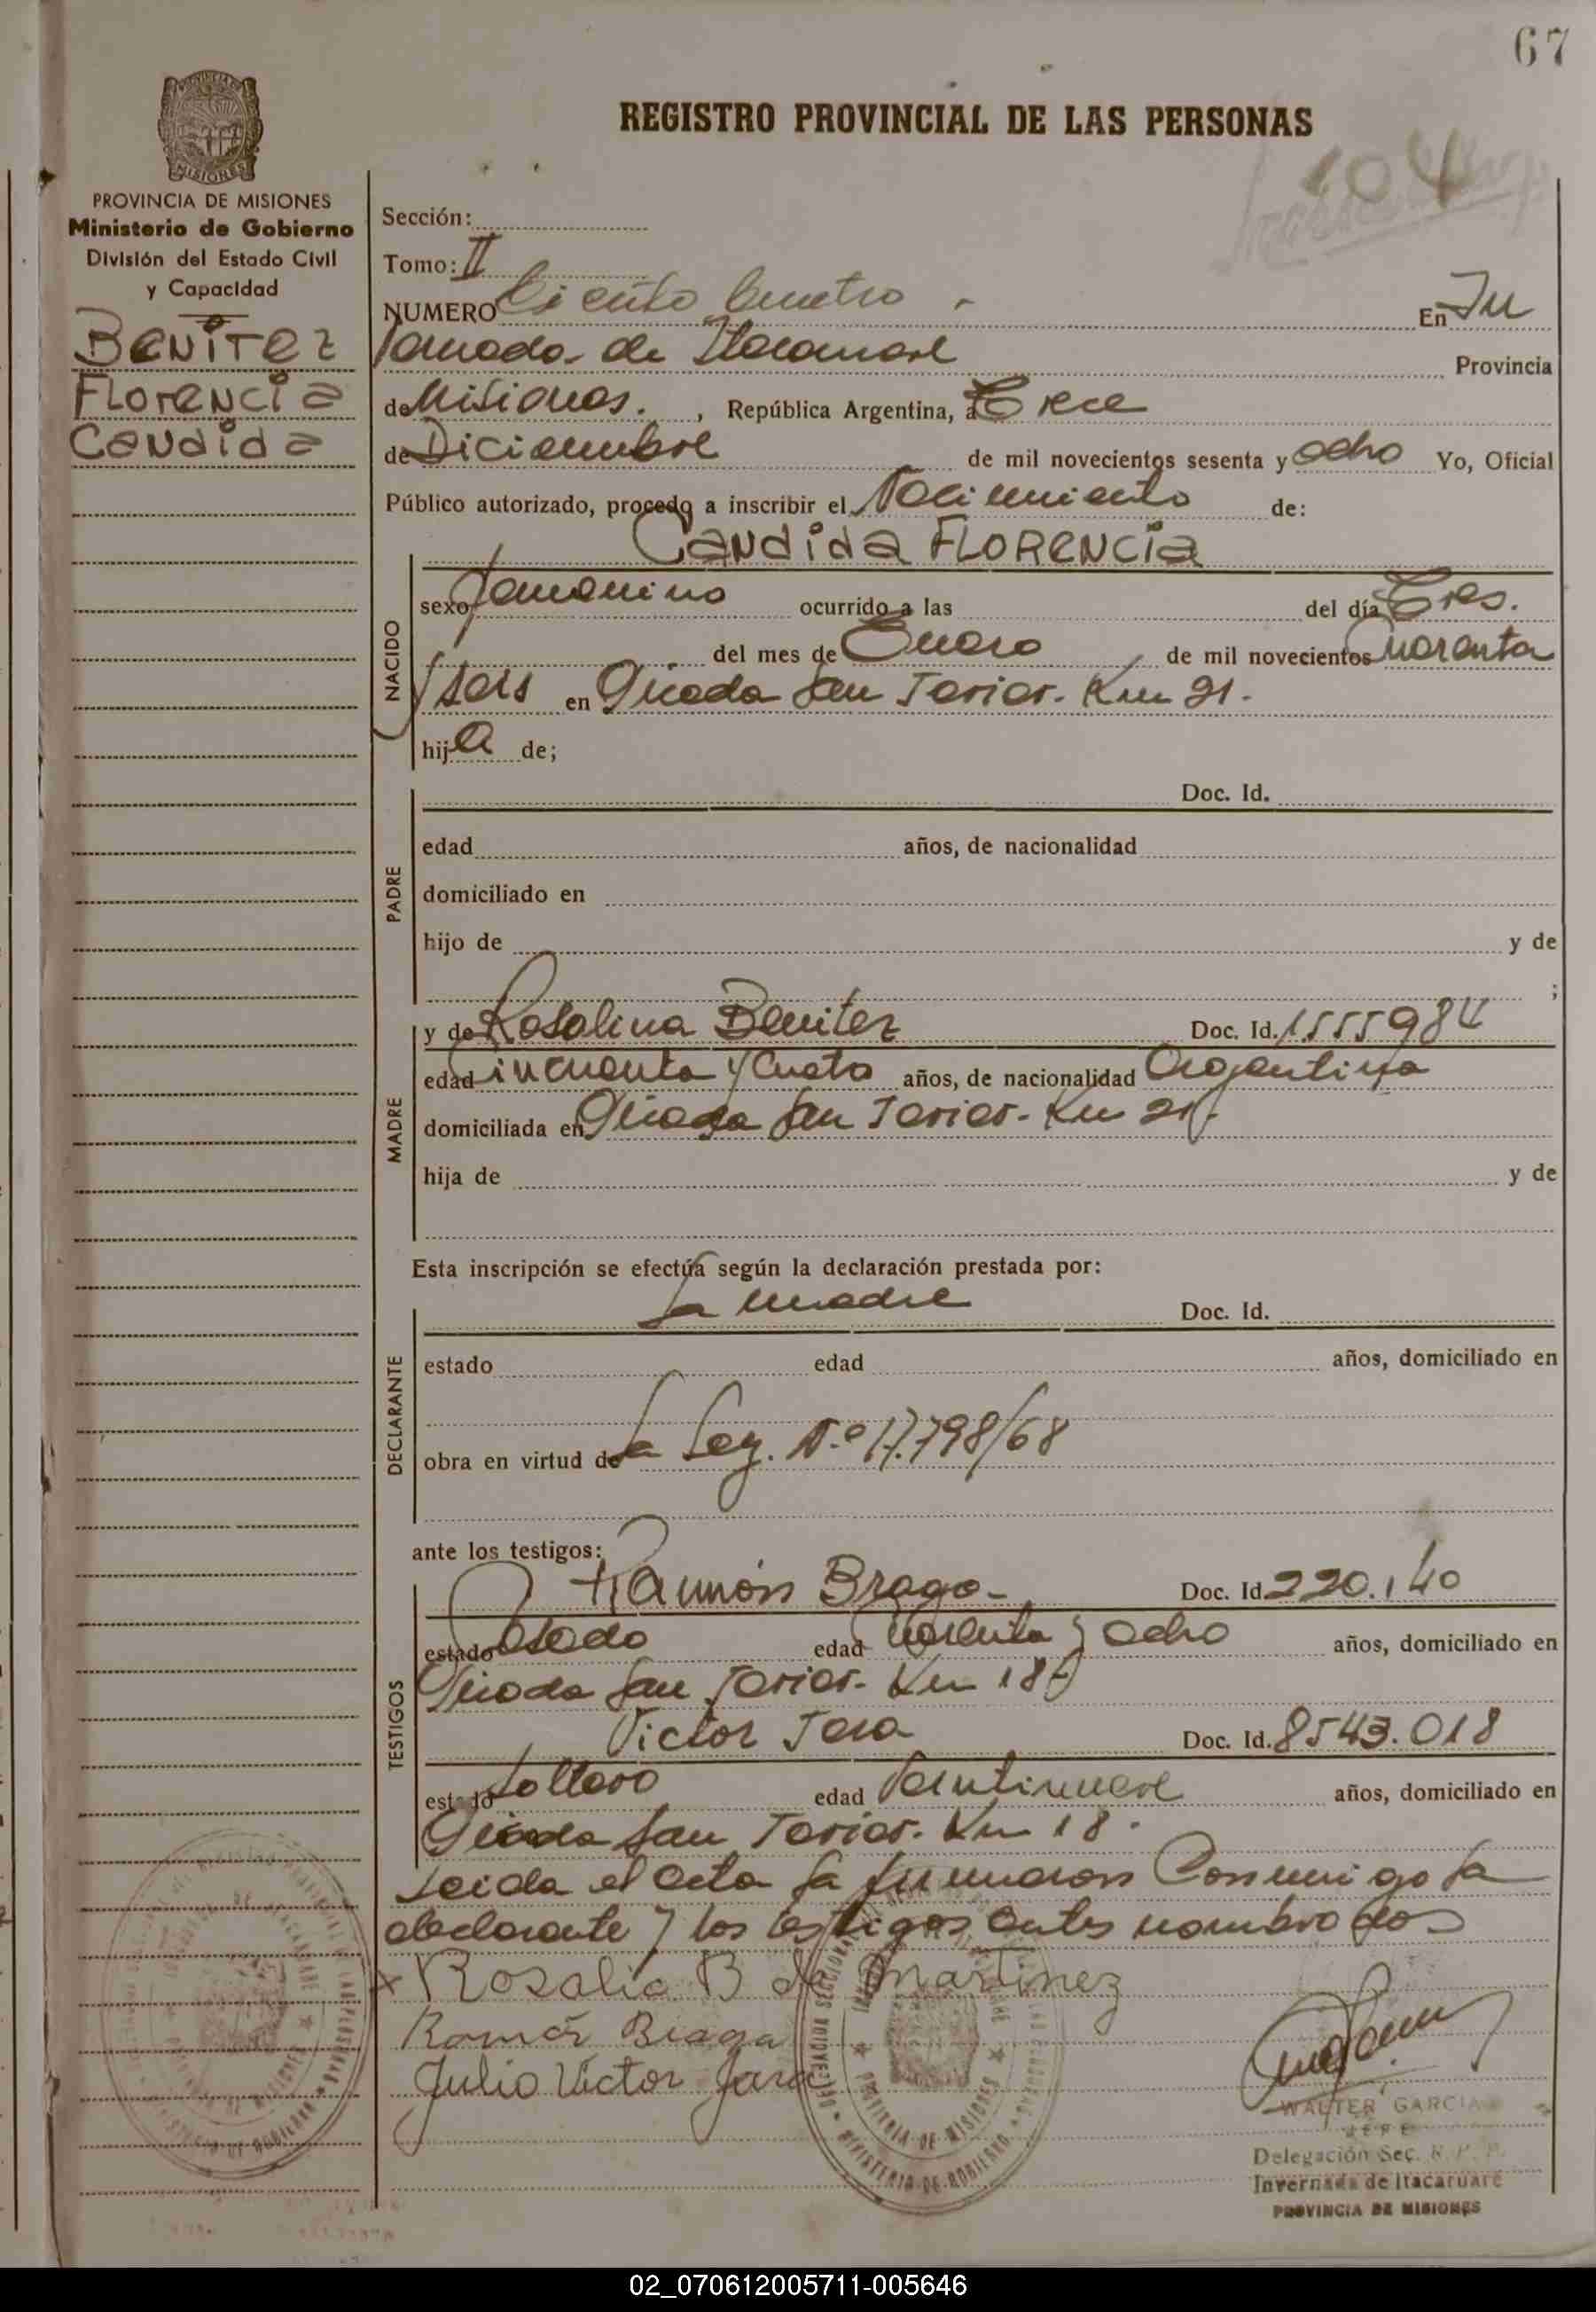 67
REGISTRO PROVINCIAL DE LAS PERSONAS
104
MISIONES
PROVINCIA DE MISIONES
Ministerio de Gobierno
División del Estado Civil
y Capacidad
BENITEZ
FLORENCIA
CANDIDA
Sección:
Tomo: II
NUMERO Ciento Cuatro -
En In
vernada de Itacaruaré
Provincia
de Misiones. , República Argentina, a Trece
de Diciembre de mil novecientos sesenta y ocho Yo, Oficial
Público autorizado, procedo a inscribir el Nacimiento de:
CANDIDA FLORENCIA
NACIDO
sexo femenino ocurrido a las del día Tres.
del mes de Enero de mil novecientos Cuarenta
y seis en Picada San Javier. Km 21.
hija de;
PADRE
Doc. Id.
edad años, de nacionalidad
domiciliado en
hijo de y de
;
MADRE
y de Rosalina Benitez Doc. Id. 1555984
edad Cincuenta y Cuatro años, de nacionalidad Argentina
domiciliada en Picada San Javier. Km 21.
hija de y de
Esta inscripción se efectúa según la declaración prestada por:
DECLARANTE
la madre Doc. Id.
estado edad años, domiciliado en
obra en virtud de la Ley. N.º 17.798/68
ante los testigos:
TESTIGOS
Ramón Braga - Doc. Id. 220.140
estado Casado edad Cuarenta y Ocho años, domiciliado en
Picada San Javier. Km 18
Victor Jara Doc. Id. 8543.018
estado soltero edad Veintinueve años, domiciliado en
Picada San Javier. Km 18.
Leida el acta la firmaron Conmigo la
declarante y los testigos antes nombrados
x Rosalia B de Martinez
Ramón Braga
Julio Victor Jara
WALTER GARCIA
JEFE
Delegación Sec. R. P. P.
Invernada de Itacaruaré
PROVINCIA DE MISIONES
PROVINCIA DE MISIONES
MINISTERIO DE GOBIERNO
02_070612005711-005646